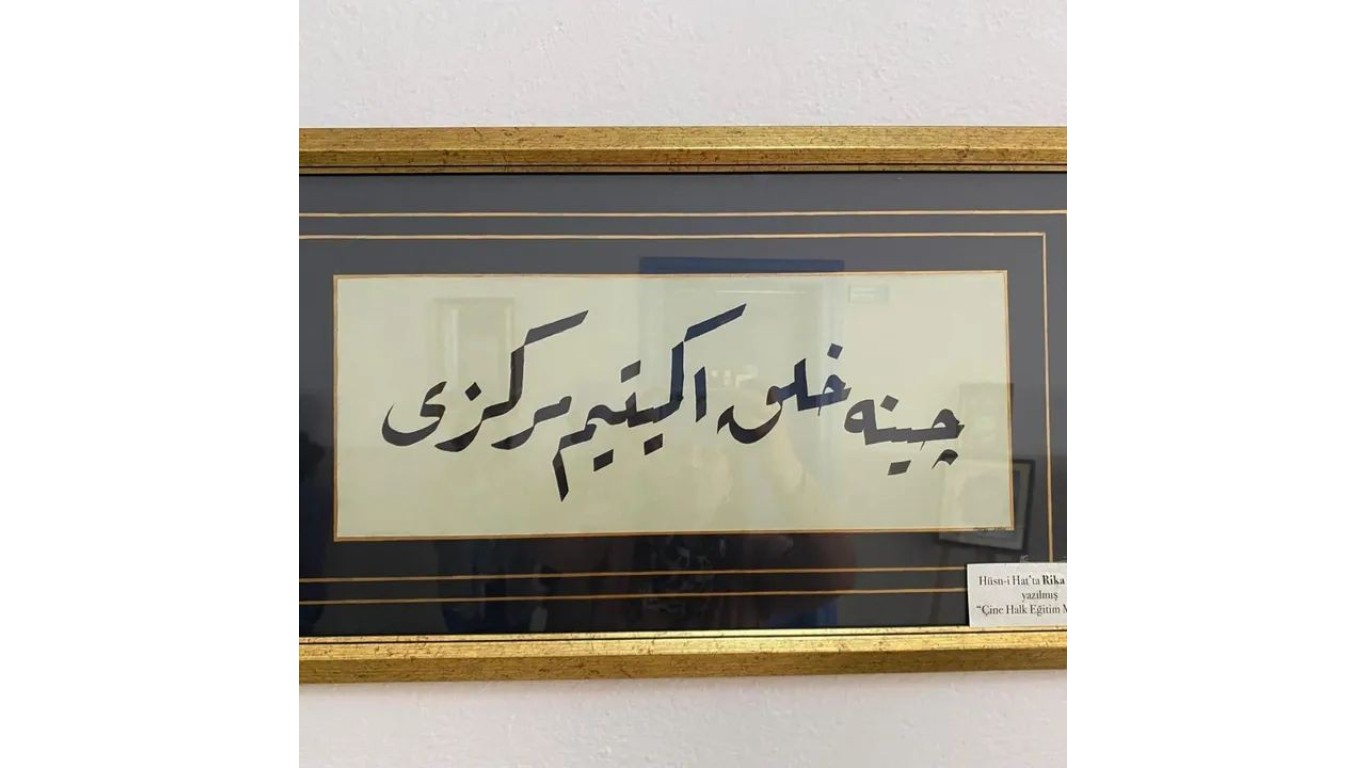 چينه خلق اكيتيم مركزى
Hüsn-i Hat'ta Rika
yazılmış
“Çine Halk Eğitim M